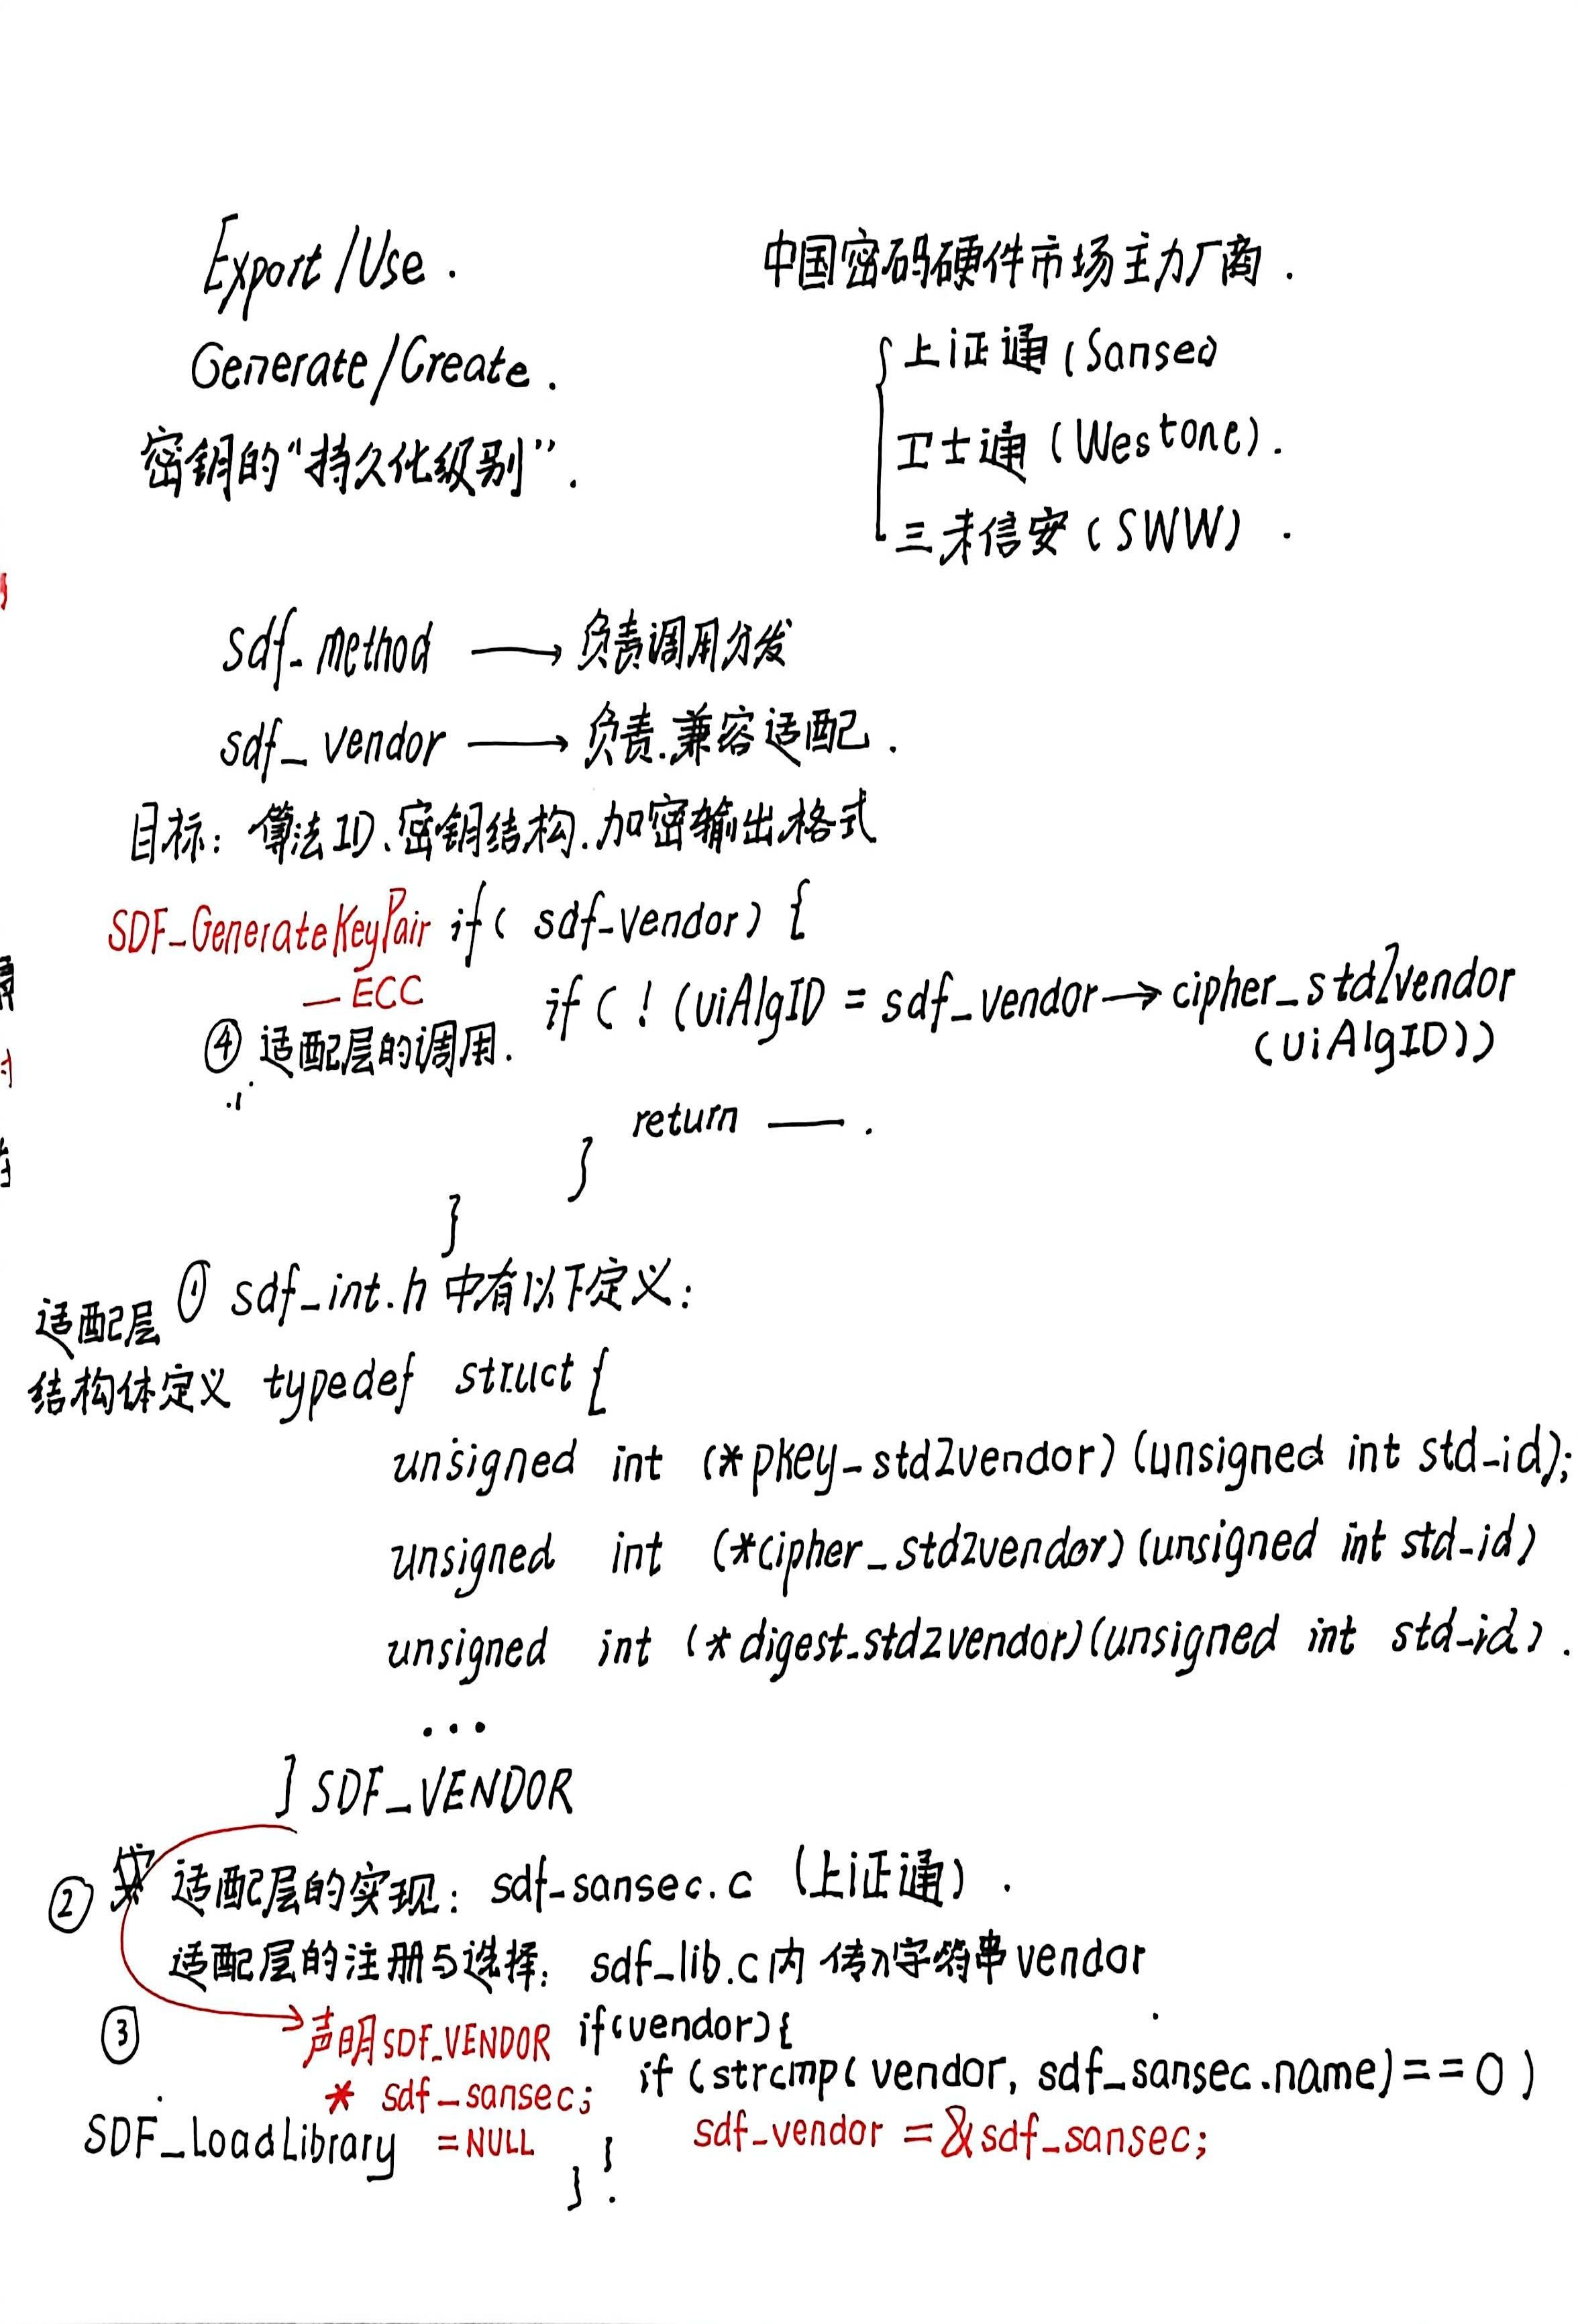 Export/Use.
Generate/Create.
密钥的“持久化级别”.
中国密码硬件市场主力厂商.
上证通(Sansec)
卫士通(Westone).
三未信安(SWW).
sdf_method → 负责调用分发
sdf_vendor → 负责.兼容适配.
目标: 算法ID、密钥结构.加密输出格式
SDF_GenerateKeyPair if( sdf_vendor) {
_ECC
if( ! (uiAlgID = sdf_vendor→cipher_std2vendor
(uiAlgID))
④ 适配层的调用.
return —.
}
}
适配层 ① sdf_int.h 中有以下定义:
结构体定义 typedef struct {
unsigned int (*pkey_std2vendor)(unsigned int std_id);
unsigned int (*cipher_std2vendor)(unsigned int std_id)
unsigned int (*digest_std2vendor)(unsigned int std_id).
...
} SDF_VENDOR
② 适配层的实现: sdf_sansec.c (上证通).
适配层的注册与选择: sdf_lib.c内 传入字符串vendor
③ 声明SDF_VENDOR if(vendor){
* sdf_sansec; if (strcmp(vendor, sdf_sansec.name)==0)
SDF_LoadLibrary =NULL } sdf_vendor = &sdf_sansec;
}.